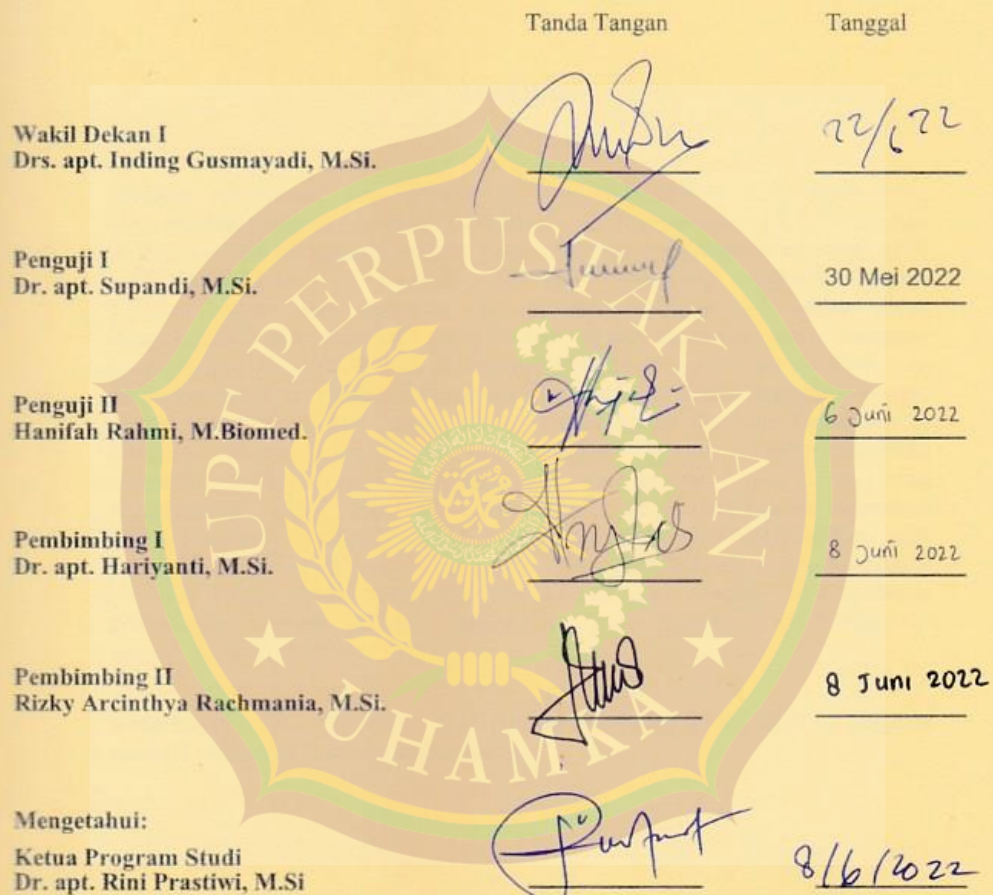 Tanda Tangan Tanggal
Wakil Dekan I
Drs. apt. Inding Gusmayadi, M.Si. 22/6 22
Penguji I
Dr. apt. Supandi, M.Si. 30 Mei 2022
Penguji II
Hanifah Rahmi, M.Biomed. 6 Juni 2022
Pembimbing I
Dr. apt. Hariyanti, M.Si. 8 Juni 2022
Pembimbing II
Rizky Arcinthya Rachmania, M.Si. 8 Juni 2022
Mengetahui:
Ketua Program Studi
Dr. apt. Rini Prastiwi, M.Si 8/6/2022
UPT PERPUSTAKAAN
UHAMKA